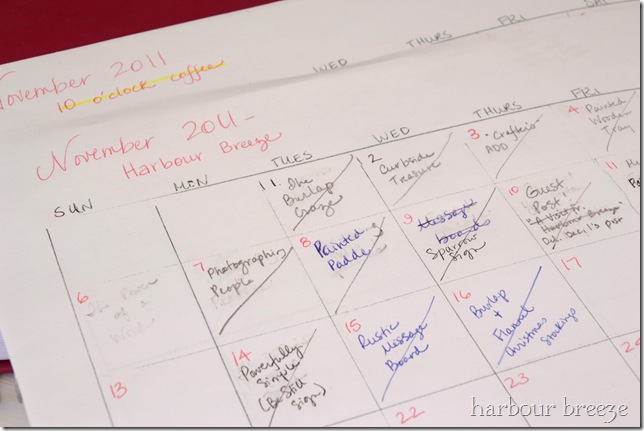 November 2011
10 o'clock coffee
WED THURS FRI SAT
November 2011 -
Harbour Breeze
SUN MON TUES WED THURS FRI
1. The
Burlap
Craze
2
Curbside
Treasure
3. Crafter's
ADD
4 Painted
Wooden
Tray
6
The Power
of a
Word
7
Photographing
People
8
Painted
9
Message
board
Sparrow
Sign
10
Guest
Post
"A Visit fr.
Harbour Breeze"
Dec. 1's post
11
13
14
Powerfully
Simple
(Be Still
sign)
15
Rustic
Message
Board
16
Burlap
+
Flannel
Christmas
Stockings
17
22
23
24
harbour breeze